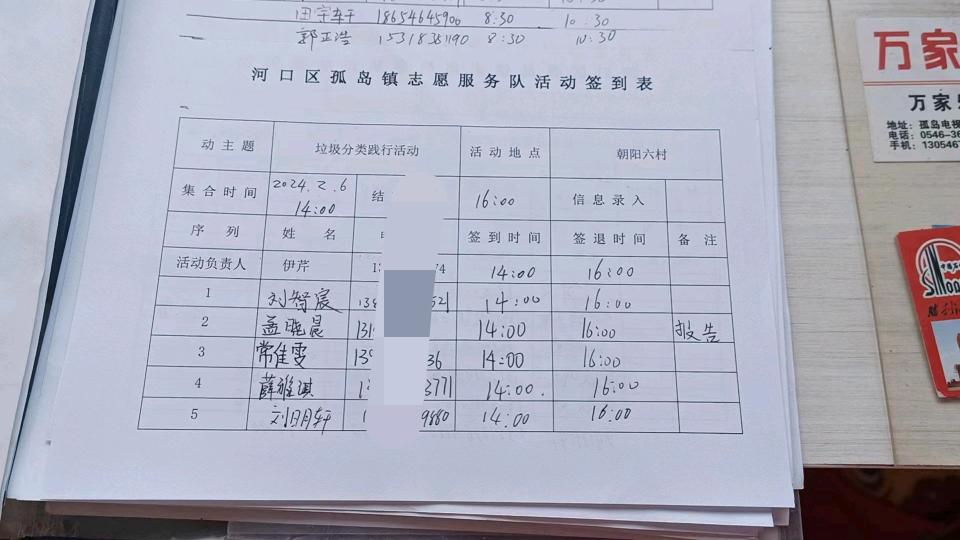 田宇轩 18654645900 8:30 10:30
郭正浩 15318351190 8:30 10:30
河口区孤岛镇志愿服务队活动签到表
动主题 垃圾分类践行活动 活动地点 朝阳六村
集合时间 2024.2.6 14:00 结 16:00 信息录入
序列 姓名 签到时间 签退时间 备注
活动负责人 伊芹 13 74 14:00 16:00
1 刘智宸 521 14:00 16:00
2 孟晓晨 131 14:00 16:00 报告
3 常佳雯 139 36 14:00 16:00
4 薛雅淇 1 3771 14:00. 16:00
5 刘明轩 1 9880 14:00 16:00
万家
万家
地址：孤岛电视
电话：0546-36
手机：130546